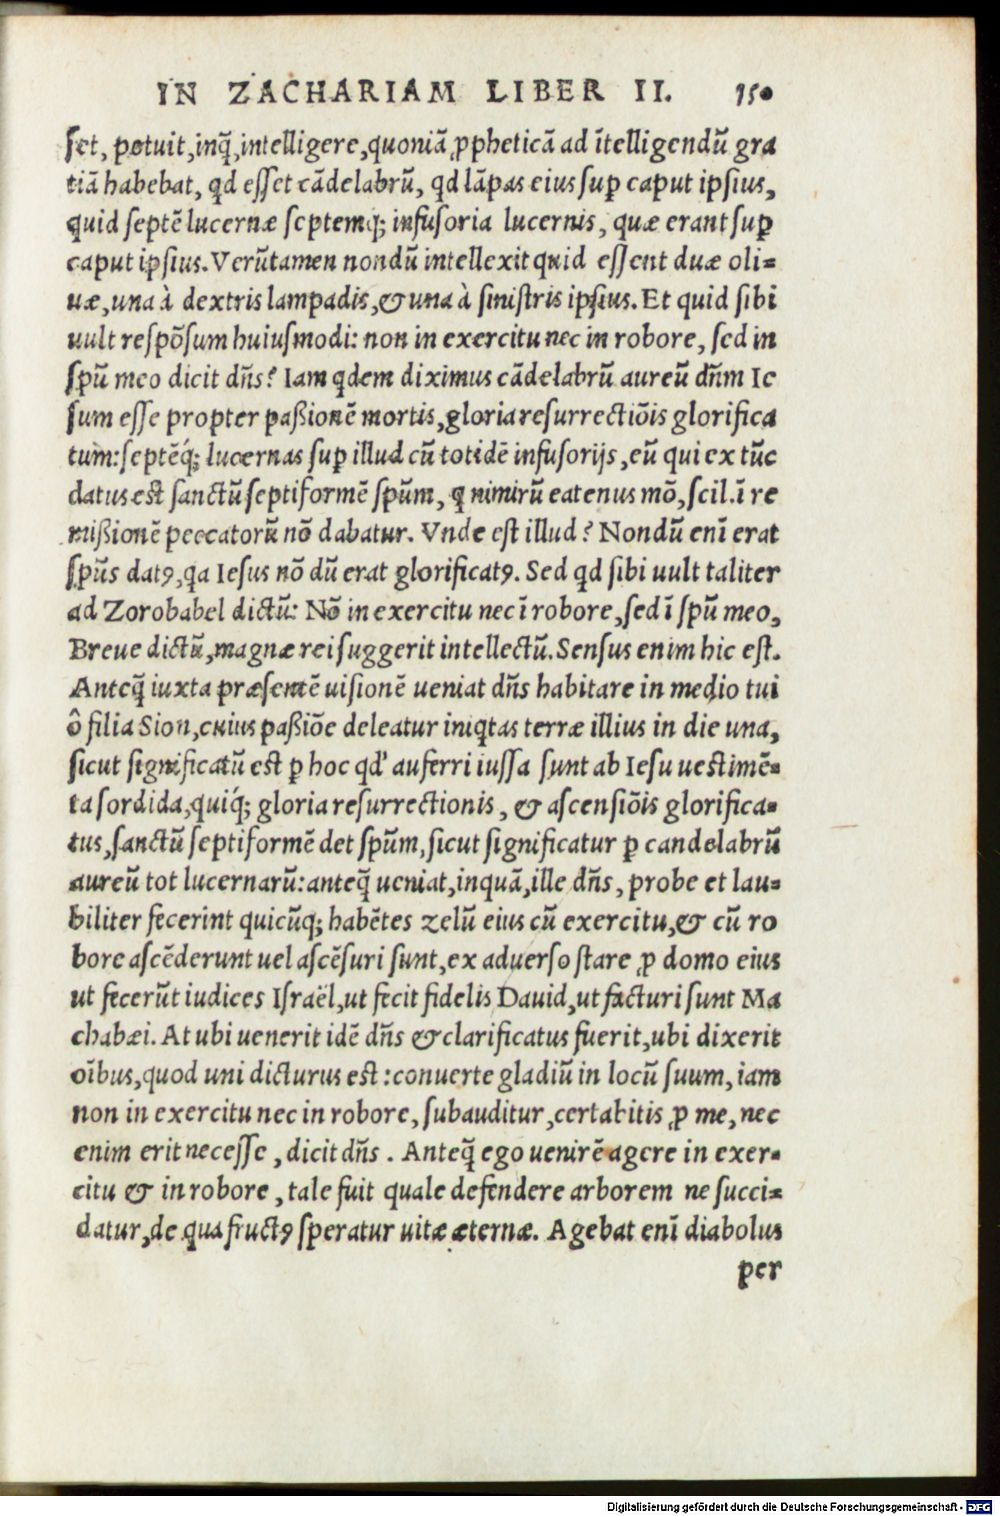 IN ZACHARIAM LIBER II. 150
set, potuit, inq̃, intelligere, quoniã ꝓpheticã ad ĩtelligendũ gra
tiã habebat, qd esset cãdelabrũ, qd lãpas eius suꝑ caput ipsius,
quid septẽ lucernæ septemq; infusoria lucernis, quæ erant suꝑ
caput ipsius. Verũtamen nondũ intellexit quid essent duæ oli-
uæ, una à dextris lampadis, & una à sinistris ipsius. Et quid sibi
uult respõsum huiusmodi: non in exercitu nec in robore, sed in
spũ meo dicit dñs? Iam qdem diximus cãdelabrũ aureũ dñm Ie
sum esse propter paßionẽ mortis, gloria resurrectiõis glorifica
tum: septẽq́; lucernas suꝑ illud cũ totidẽ infusorijs, eũ qui ex tũc
datus est sanctũ septiformẽ spũm, q nimirũ eatenus mõ, scil. ĩ re
mißionẽ peccatorũ nõ dabatur. Vnde est illud? Nondũ enĩ erat
spũs datꝯ, qa Iesus nõ dũ erat glorificatꝯ. Sed qd sibi uult taliter
ad Zorobabel dictũ: Nõ in exercitu nec ĩ robore, sed ĩ spũ meo,
Breue dictũ, magnæ rei suggerit intellectũ. Sensus enim hic est.
Anteq̃ iuxta præsentẽ uisionẽ ueniat dñs habitare in medio tui
ô filia Sion, cuius paßiõe deleatur iniqtas terræ illius in die una,
sicut significatũ est ꝑ hoc qd' auferri iussa sunt ab Iesu uestimẽ-
ta sordida, quiq́; gloria resurrectionis, & ascensiõis glorifica-
tus, sanctũ septiformẽ det spũm, sicut significatur ꝑ candelabrũ
aureũ tot lucernarũ: anteq̃ ueniat, inquã, ille dñs, probe et lau-
biliter fecerint quicũq; habẽtes zelũ eius cũ exercitu, & cũ ro
bore ascẽderunt uel ascẽsuri sunt, ex aduerso stare ꝓ domo eius
ut fecerũt iudices Israël, ut fecit fidelis Dauid, ut facturi sunt Ma
chabæi. At ubi uenerit idẽ dñs & clarificatus fuerit, ubi dixerit
oĩbus, quod uni dicturus est: conuerte gladiũ in locũ suum, iam
non in exercitu nec in robore, subauditur, certabitis ꝓ me, nec
enim erit necesse, dicit dñs. Anteq̃ ego uenirẽ agere in exer-
citu & in robore, tale fuit quale defendere arborem ne succi-
datur, de qua fructꝯ speratur uitæ æternæ. Agebat enĩ diabolus
per
Digitalisierung gefördert durch die Deutsche Forschungsgemeinschaft - DFG